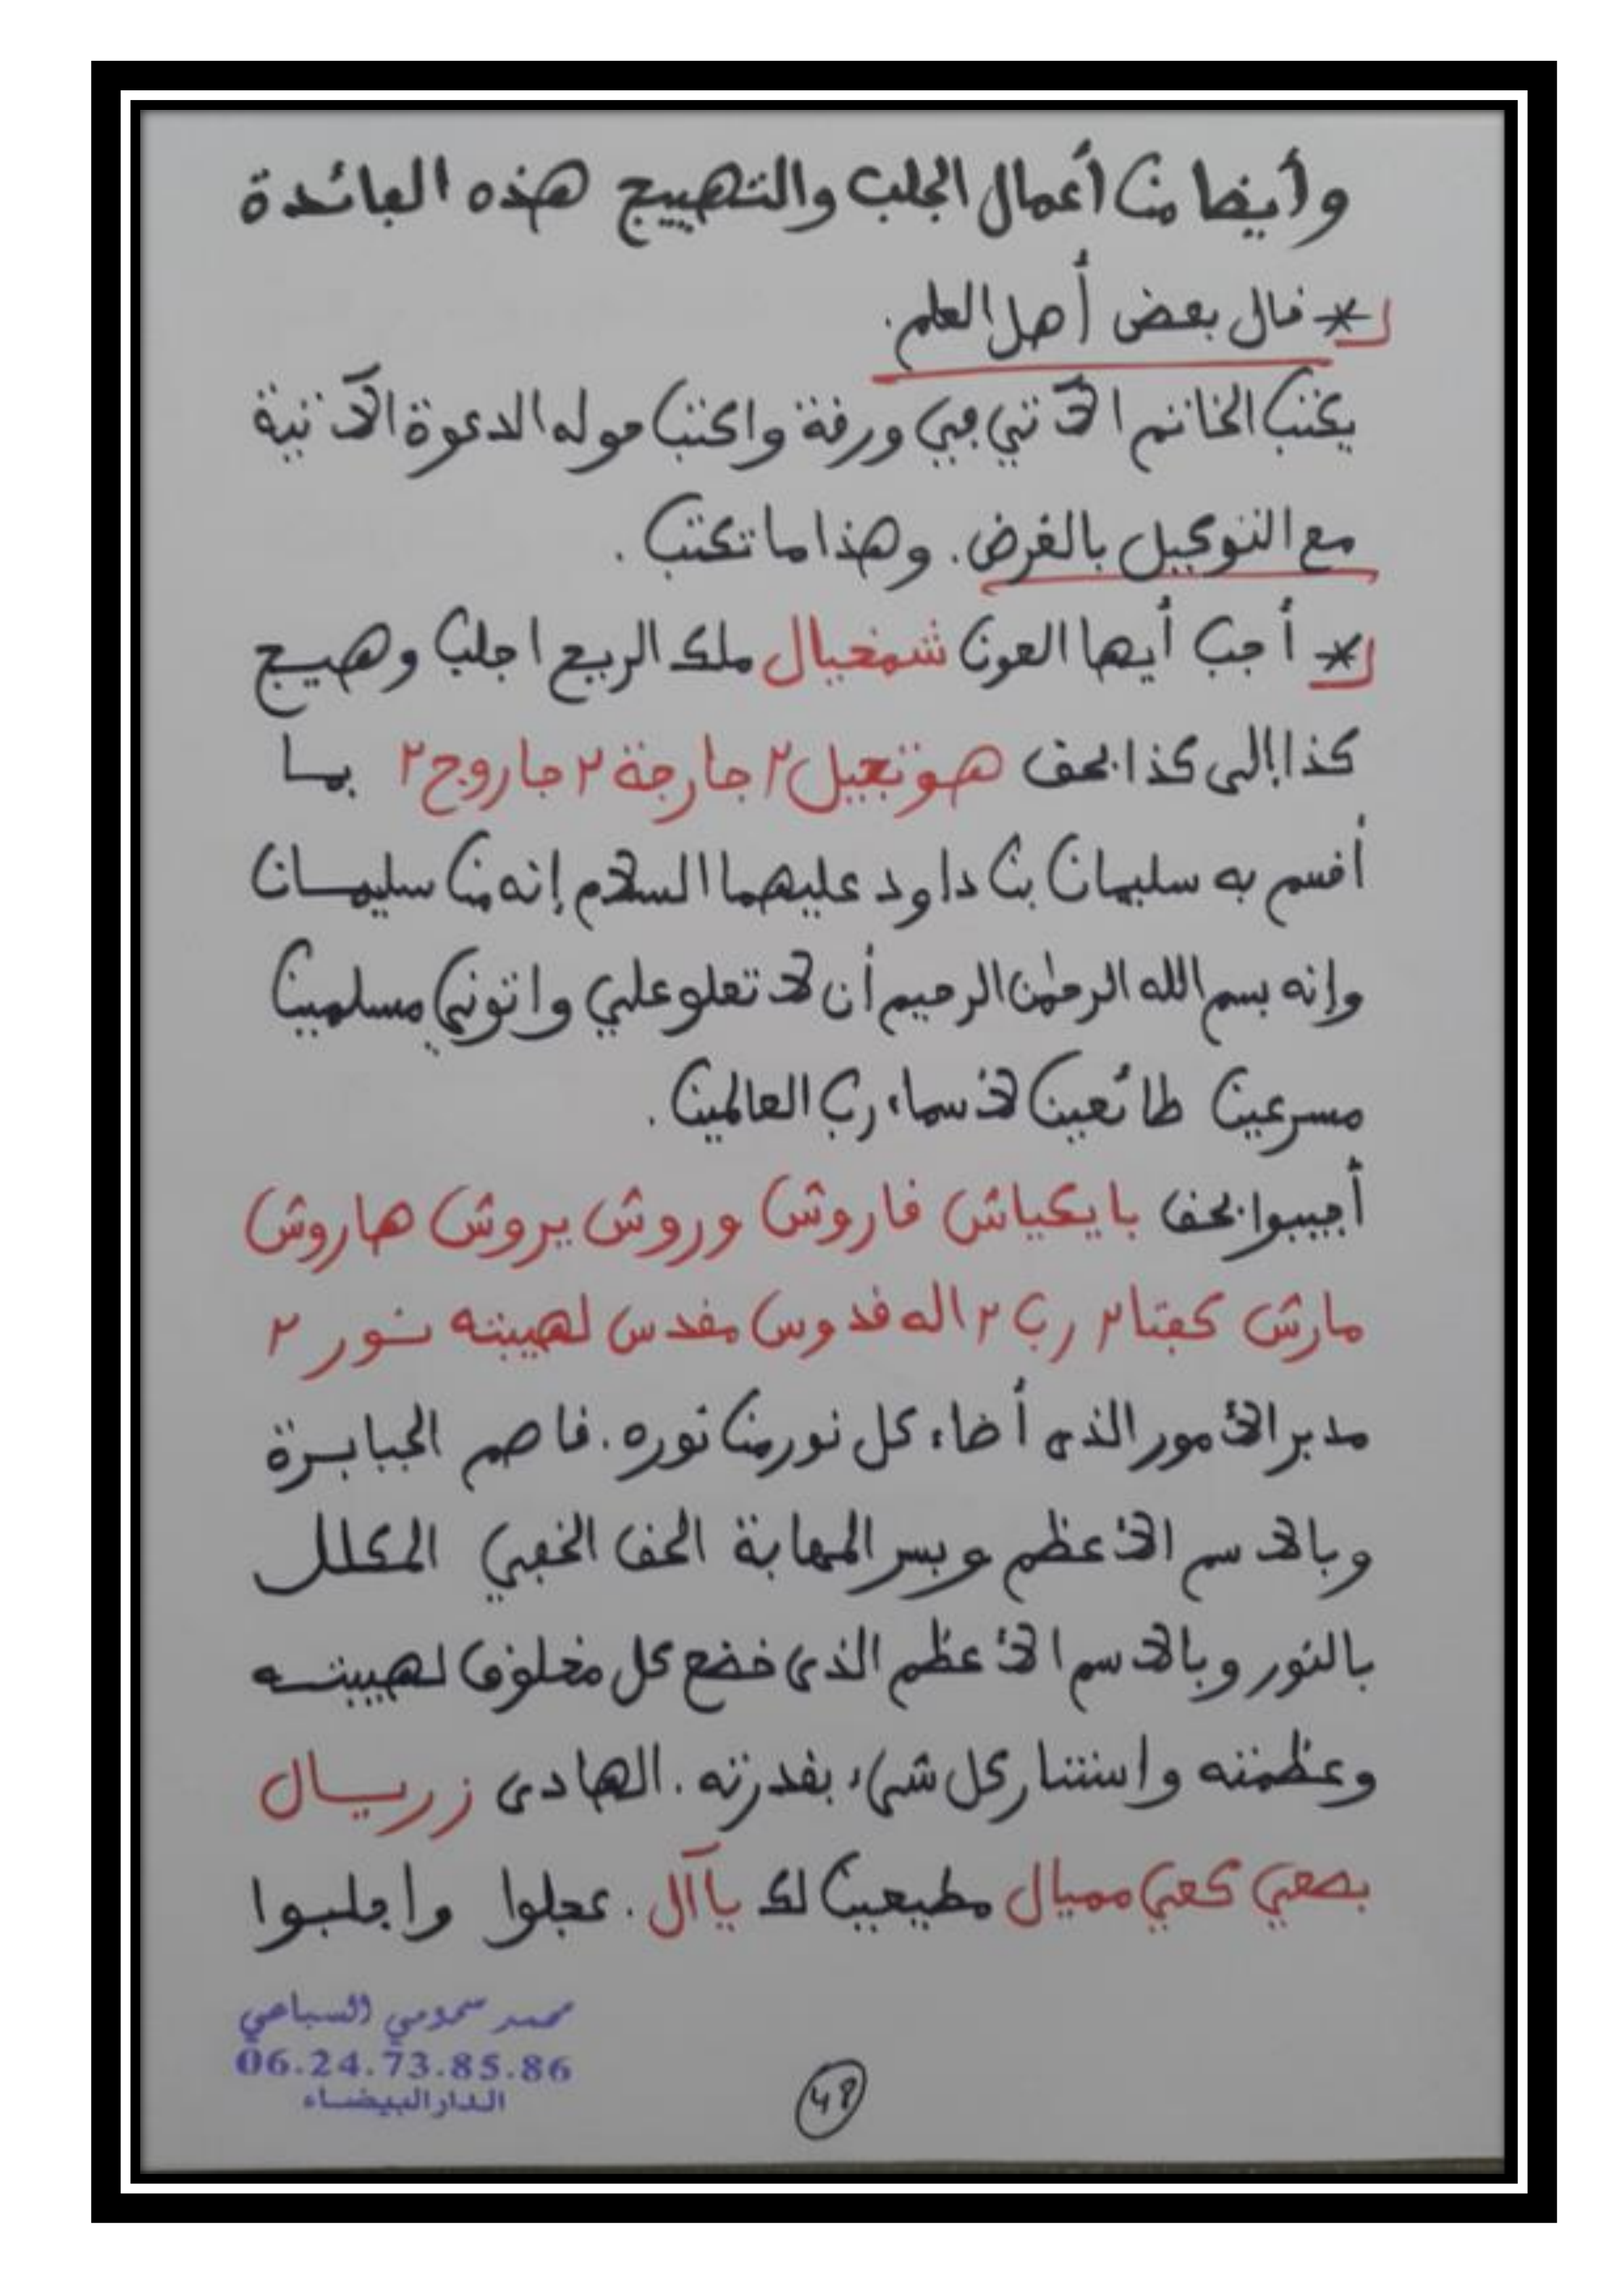 وأيضا من أعمال الجلب والتهييج هذه الفائدة
* قال بعض أهل العلم.
يكتب الخاتم الآتي في ورقة واكتب حوله الدعوة الآتية
مع التوكيل بالغرض. وهذا ما تكتب.
* أجب أيها العون شمخيال ملك الريح اجلب وهيج
كذا إلى كذا بحق هوتجيل ٢ جارجة ٢ جاروج ٢ بما
أقسم به سليمان بن داود عليهما السلام إنه من سليمان
وإنه بسم الله الرحمٰن الرحيم أن لا تعلو علي واتوني مسلمين
مسرعين طائعين لأسماء رب العالمين.
أجيبوا بحق بايكياش قاروش وروش يروش هاروش
مارش كفتا ٢ رب ٢ اله قدوس مقدس لهيبته نور ٢
مدبر الأمور الذي أضاء كل نور من نوره. قاصم الجبابرة
وبالاسم الأعظم وبسر المهابة الحق الخفي المكلل
بالنور وبالاسم الأعظم الذي خضع كل مخلوق لهيبته
وعظمته واستنار كل شيء بقدرته. الهادي زريال
بصعي كعي مميال مطيعين لك يا آل. عجلوا واجلبوا
محمد سحومي السباعي
06.24.73.85.86
الدار البيضاء
48